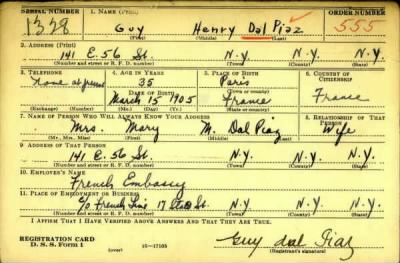 SERIAL NUMBER 1. NAME (Print) ORDER NUMBER
1328 Guy Henry Dal Piaz 555
(First) (Middle) (Last)
2. ADDRESS (Print)
141 E. 56 St. N.Y. N.Y.
(Number and street or R. F. D. number) (Town) (County) (State)
3. TELEPHONE 4. AGE IN YEARS 5. PLACE OF BIRTH 6. COUNTRY OF CITIZENSHIP
None at present 35 Paris
DATE OF BIRTH (Town or county)
March 15 1905 France France
(Exchange) (Number) (Mo.) (Day) (Yr.) (State or country)
7. NAME OF PERSON WHO WILL ALWAYS KNOW YOUR ADDRESS 8. RELATIONSHIP OF THAT PERSON
Mrs. Mary M. Dal Piaz Wife
(Mr., Mrs., Miss) (First) (Middle) (Last)
9. ADDRESS OF THAT PERSON
141 E. 56 St. N.Y. N.Y.
(Number and street or R. F. D. number) (Town) (County) (State)
10. EMPLOYER'S NAME
French Embassy
11. PLACE OF EMPLOYMENT OR BUSINESS
c/o French Line 17 St. N.Y. N.Y.
(Number and street or R. F. D. number) (Town) (County) (State)
I AFFIRM THAT I HAVE VERIFIED ABOVE ANSWERS AND THAT THEY ARE TRUE.
REGISTRATION CARD
D. S. S. FORM 1 (over) 16—17105 Guy dal Piaz
(Registrant's signature)